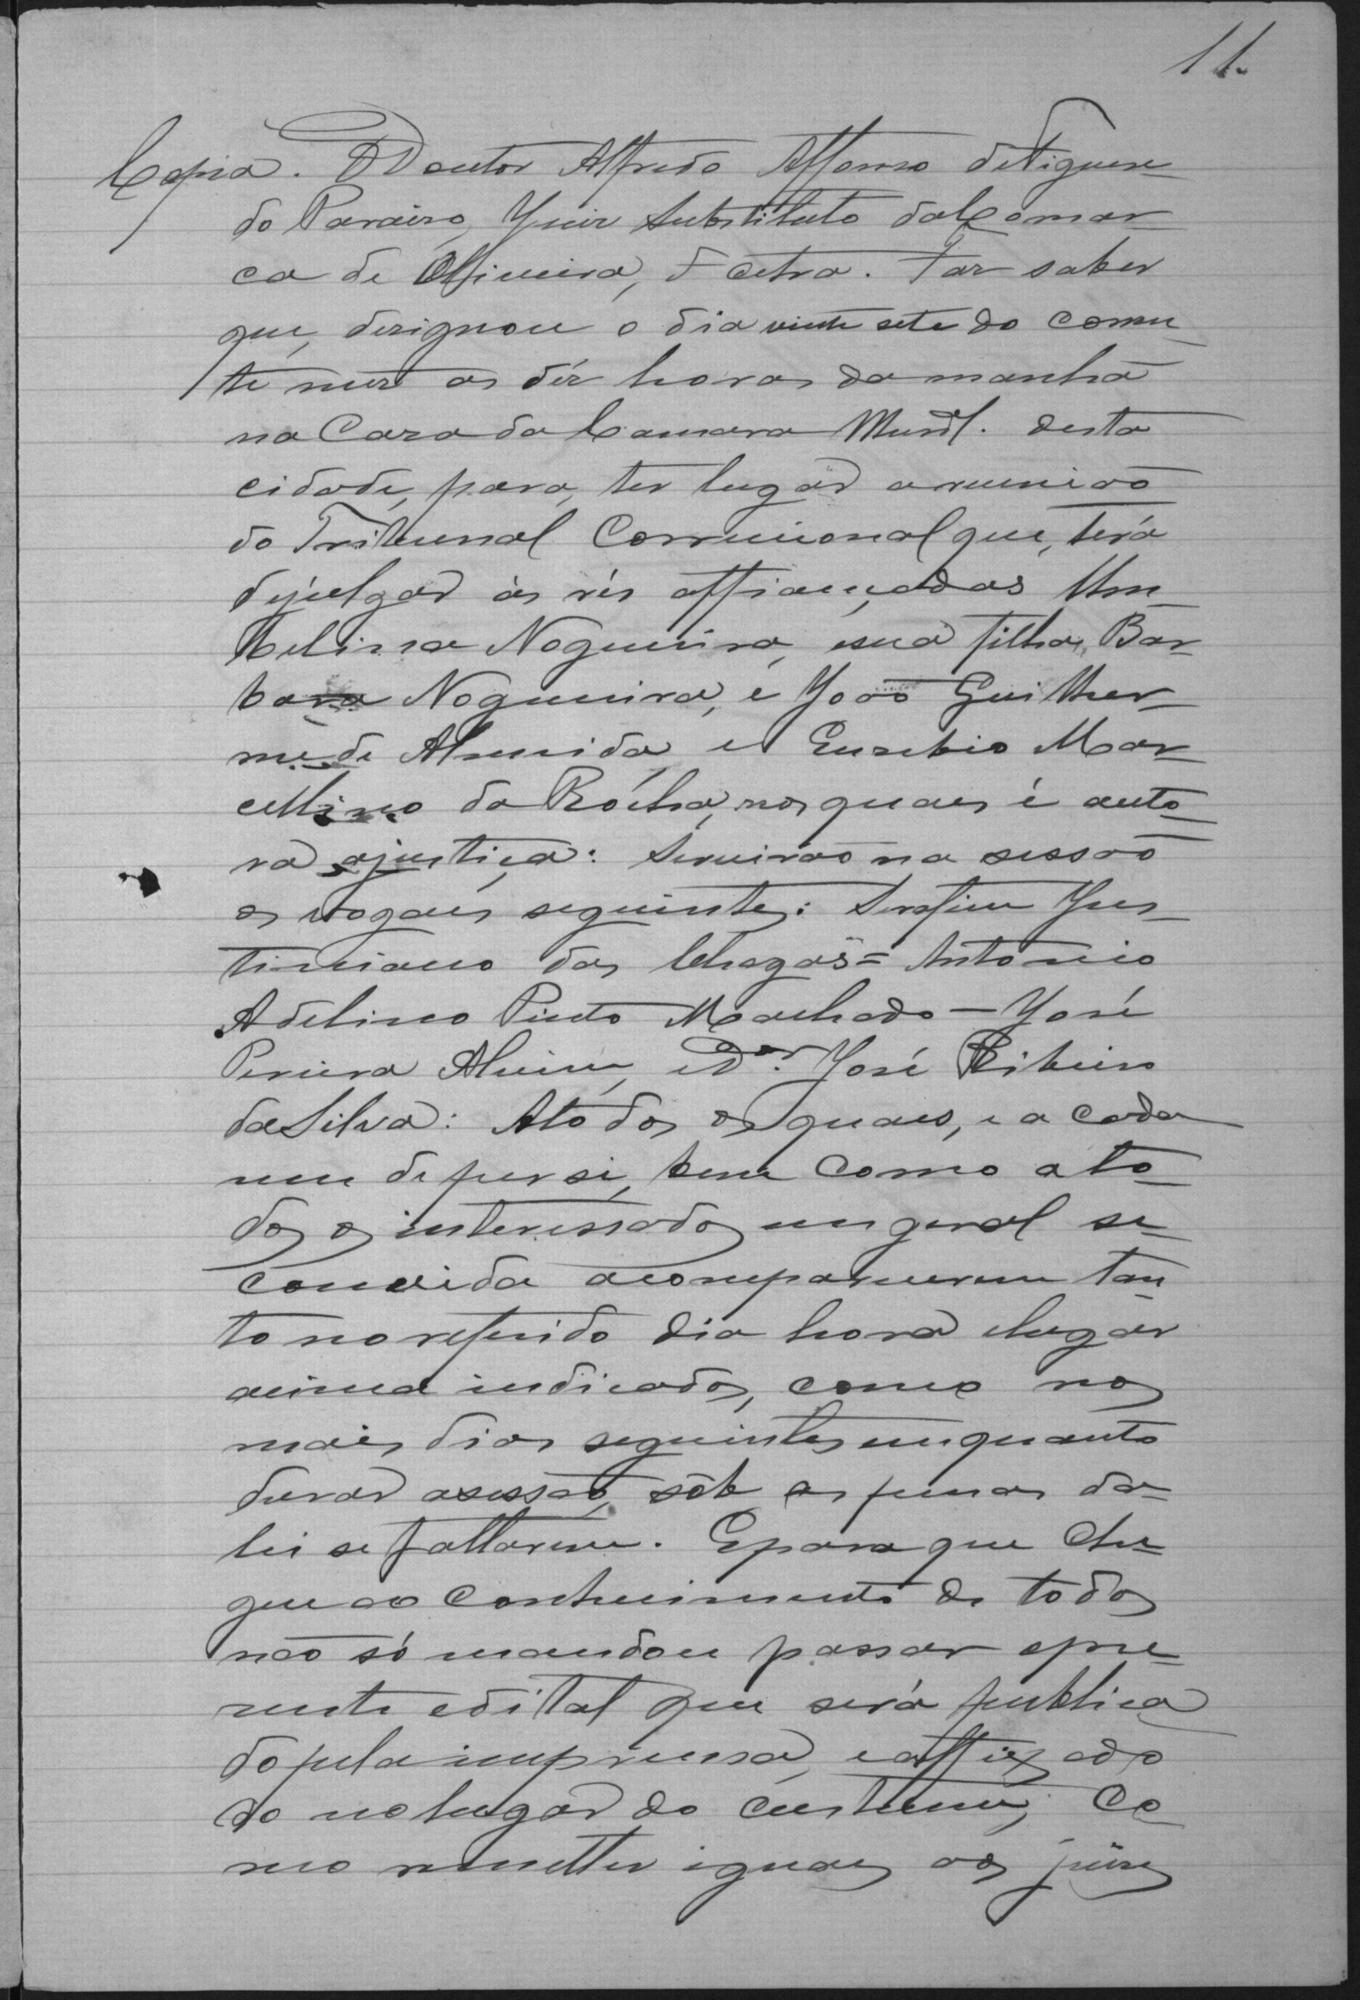 11.
Copia. O Doutor Alfredo Affonso de Figueire-
do Paraizo, Juiz Substituto da Comar-
ca de Oliveira, & cetra. Faz saber
que, dezignou o dia vinte sete do corren-
te mez as déz horas da manhã
na Caza da Camara Munl. desta
cidade, para, ter lugar a reunião
do Tribunal Correcional que, terá
de julgar ás rés affiançadas Um-
belina Nogueira, e sua filha, Bar-
bara Nogueira, e João Guilher-
me de Almeida, e Euzebio Mar-
cellino da Rócha, nos quaes é auto-
ra a justiça: Servirão na sessão
os vogaes seguintes: Serafim Jus-
tiniano das Chagas = Antonio
Adelino Pinto Machado — José
Pereira Alvim, e Dor. José Ribeiro
da Silva: A todos os quaes, e a cada
um de per si, bem como a to-
dos os interessados em geral se
convida a comparecerem tan-
to no referido dia hora e lugar
acima indicados, como nos
mais dias seguintes emquanto
durar a sessão, sób as penas da
lei se faltarem. E para que che-
gue ao conhecimento de todos
não só mandou passar o pre-
zente edital que será publica
do pela imprensa, e affixado
do no lugar do custume, co-
mo remetter iguaes aos juizes